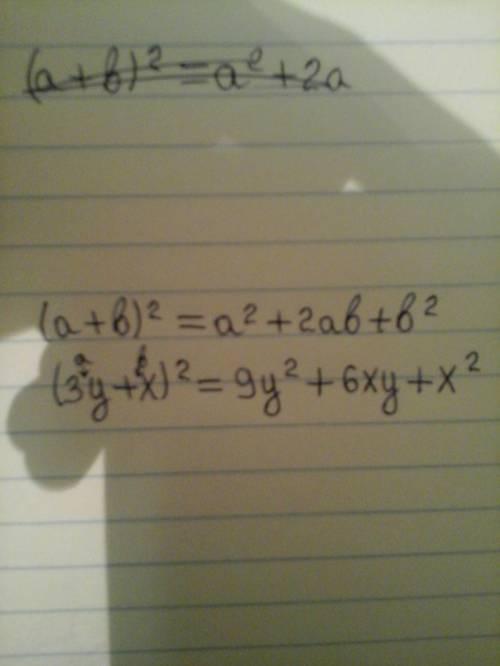 (a+b)² = a² + 2a
(a+b)² = a² + 2ab + b²
a b
(3y+x)² = 9y² + 6xy + x²